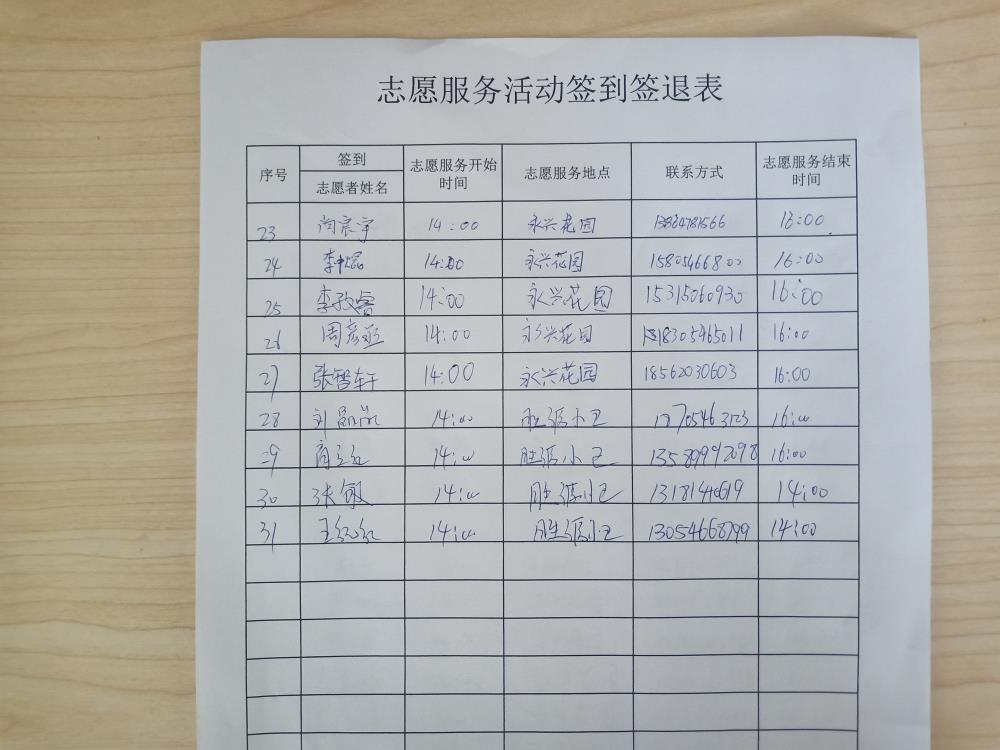 志愿服务活动签到签退表
序号 签到 志愿者姓名 志愿服务开始时间 志愿服务地点 联系方式 志愿服务结束时间
23 陶宸宇 14:00 永兴花园 16:00
24 李 14:00 永兴花园 15805466800 16:00
25 李孜睿 14:00 永兴花园 15315060930 16:00
26 周彦 14:00 永兴花园 18305465011 16:00
27 张智轩 14:00 永兴花园 18562030603 16:00
28 刘 14:00 小区 16:00
29 14:00 小区 13589992098 16:00
30 张敏 14:00 小区 14:00
31 王红红 14:00 小区 13054668799 14:00